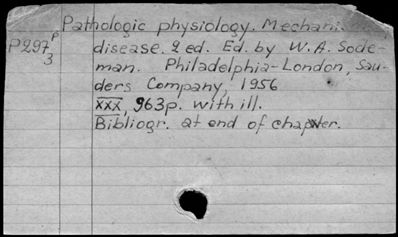 Pathologic physiology. Mechani.
P297 p disease. 2 ed. Ed. by W.A. Sode-
3 man. Philadelphia-London, Sau-
ders Company, 1956
XXX, 963p. with ill.
Bibliogr. at end of chapter.